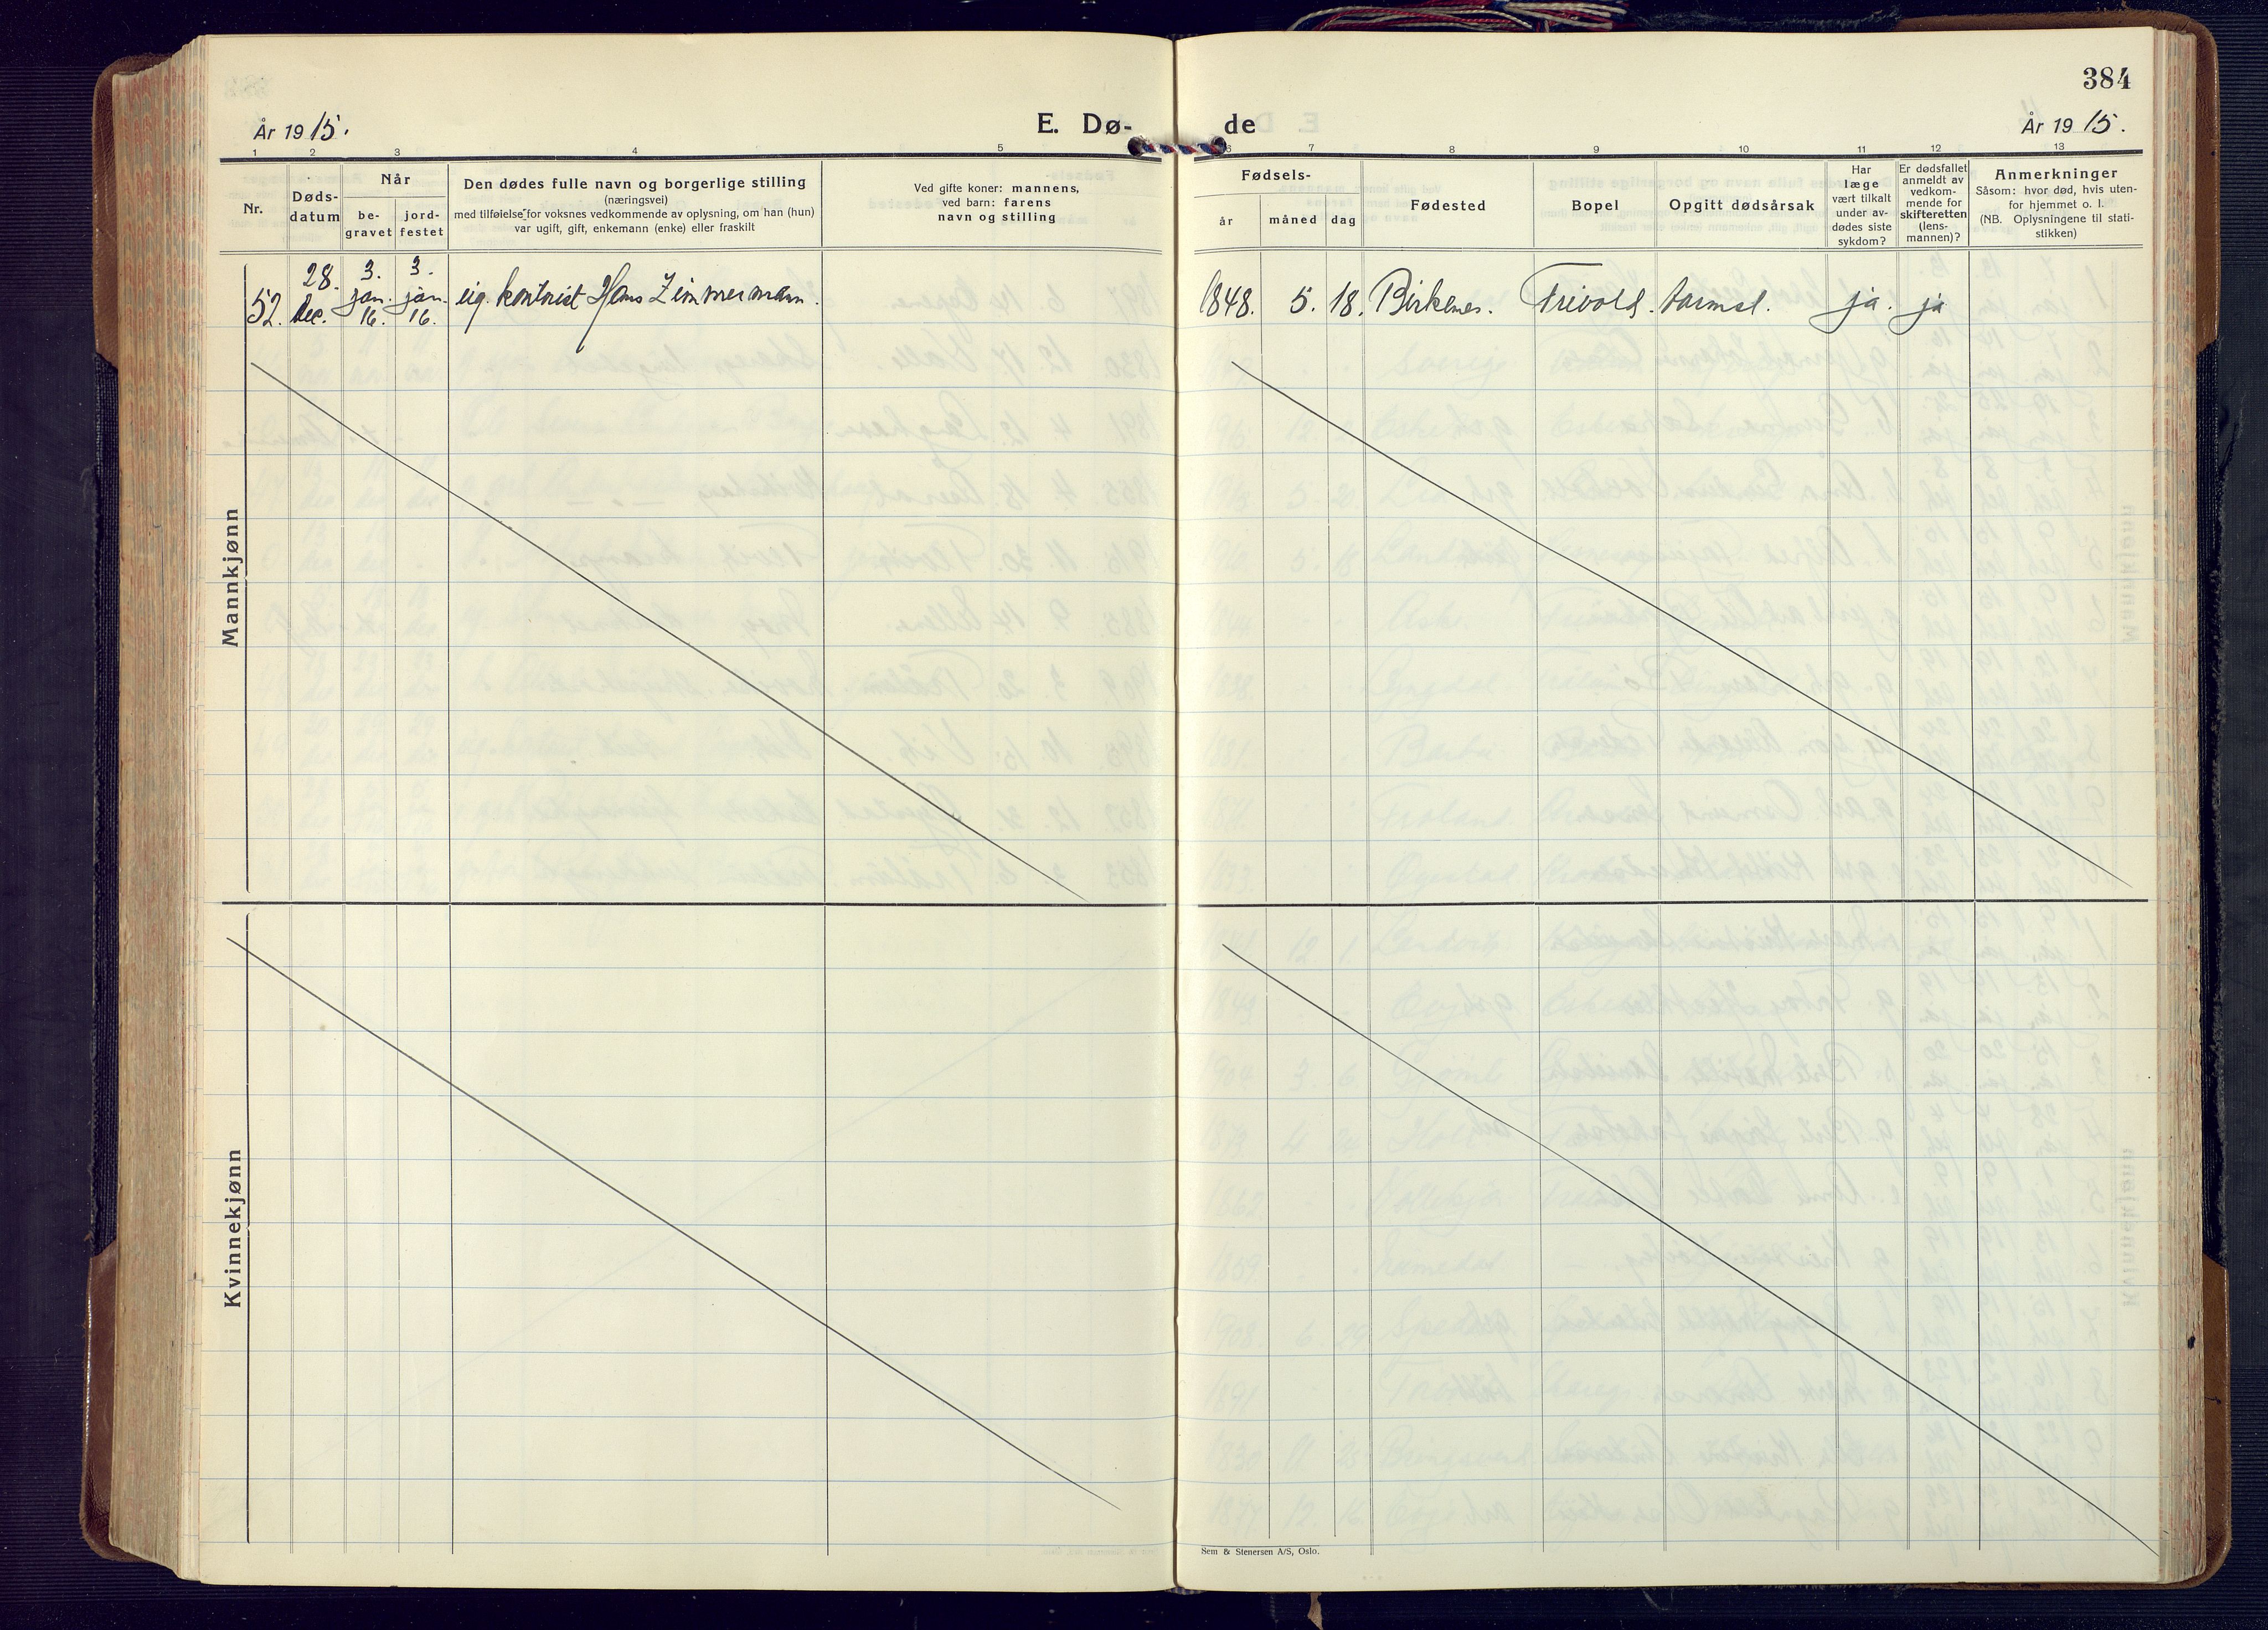 384
År 1915.
E. Dø-
de
År 1915.
1 2 3 4 5 6 7 8 9 10 11 12 13
Nr.
Døds-
datum
Når
be-
gravet
jord-
festet
Den dødes fulle navn og borgerlige stilling
(næringsvei)
med tilføielse for voksnes vedkommende av oplysning, om han (hun)
var ugift, gift, enkemann (enke) eller fraskilt
Ved gifte koner: mannens,
ved barn: farens
navn og stilling
Fødsels-
år
måned
dag
Fødested
Bopel
Opgitt dødsårsak
Har
læge
vært tilkalt
under av-
dødes siste
sykdom?
Er dødsfallet
anmeldt av
vedkom-
mende for
skifteretten
(lens-
mannen)?
Anmerkninger
Såsom: hvor død, hvis uten-
for hjemmet o. l.
(NB. Oplysningene til stati-
stikken)
Mannkjønn
52. 28. dec. 3. jan. 16. 3. jan. 16. ug. kontorist Hans Zimmermann. 1848. 5. 18. Birkenes. Trivold. tarmsl. ja. ja
Kvinnekjønn
Sem & Stenersen A/S, Oslo.